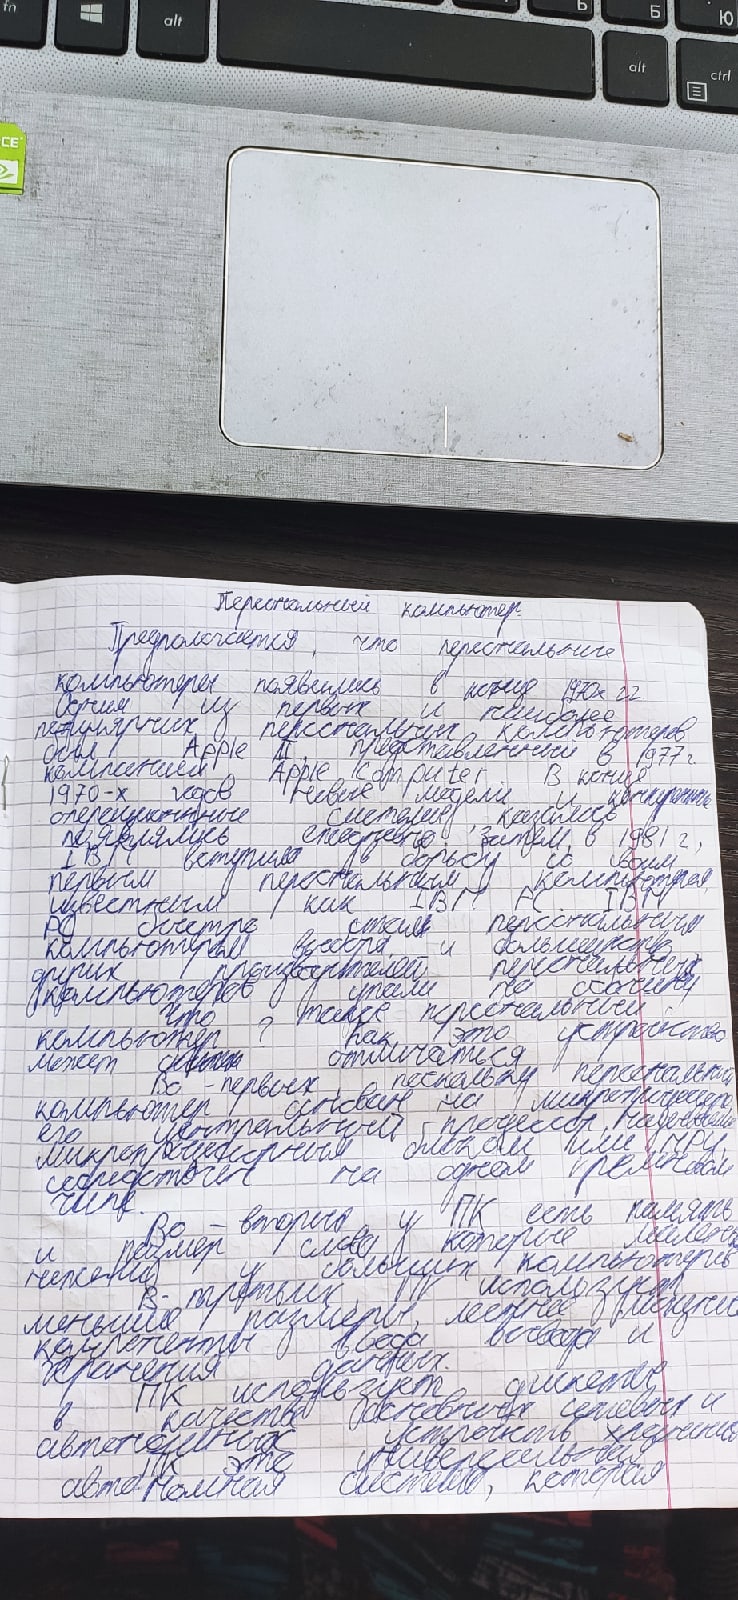 fn
alt
Ь
Б
Ю
alt
ctrl
CE
Персональный компьютер.
Предполагается, что персональные
компьютеры появились в конце 1970х гг
Одним из первых и наиболее
популярных персональных компьютеров
был Apple II, представленный в 1977 г
компанией Apple Computer. В конце
1970-х годов новые модели и
операционные системы казалось
появлялись ежедневно. Затем, в 1981 г,
IBM вступила в борьбу со своим
первым персональным компьютером,
известным как IBM PC IBM
PC быстро стал персональным
компьютером и большинство
других производителей персональных
компьютеров упали на
Что такое персональный
компьютер? Как это устройство
может отличаться
Во-первых, поскольку персональный
компьютер основан на
его центральный процессор,
микропроцессорным блоком или MPU,
на одном кремниевом
чипе.
Во-вторых у ПК есть память
и размер слова, которые
у больших компьютеров
В-третьих, ПК использует
меньшие размеры,
компоненты ввода вывода и
хранения данных.
ПК использует дискеты
в качестве основных сетевых и
автономных устройств хранения
ПК это универсальная
автономная система, которая